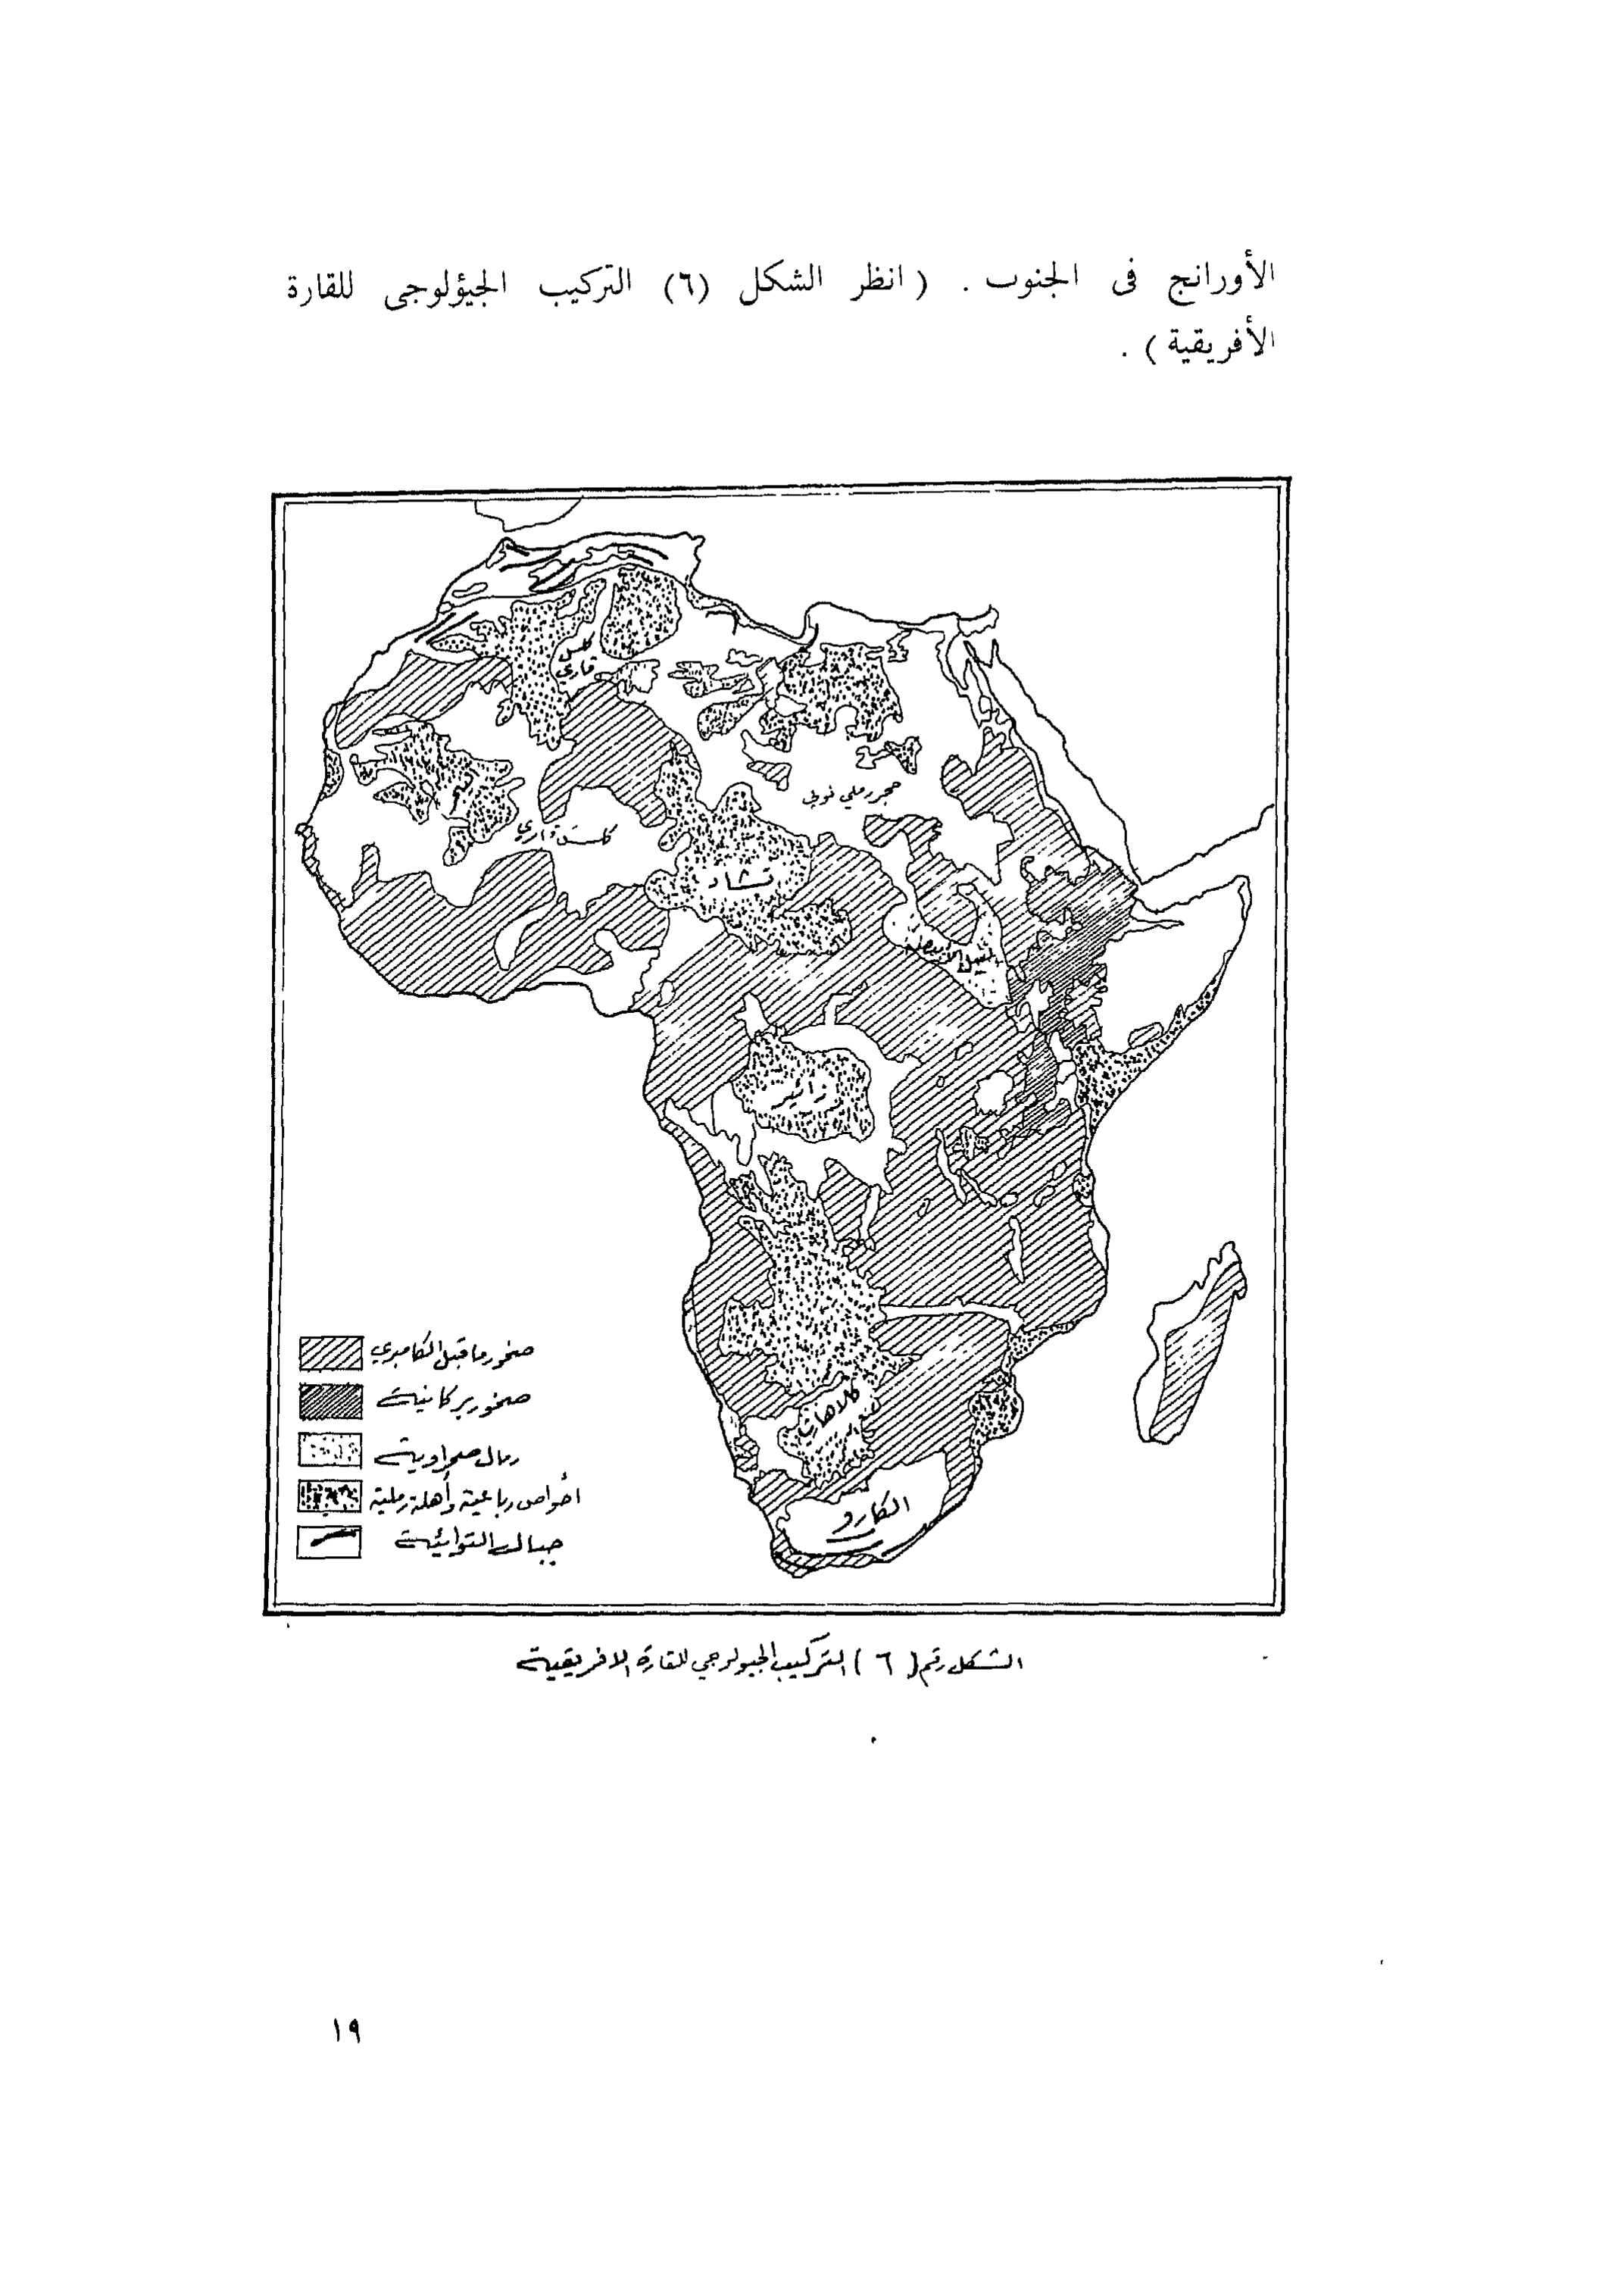 الأورانج فى الجنوب . ( انظر الشكل (٦) التركيب الجيؤلوجى للقارة
الأفريقية ) .
كلس
قاري
حجر رملي نوبي
كلس قاري
تشاد
النيل الأبيض
زائير
كلاهاري
الكارو
صخور ما قبل الكامبري
صخور بركانية
رمال صحراوية
احواض رباعية وأهلة رملية
جبال التوائية
الشكل رقم ( ٦ ) التركيب الجيولوجي للقارة الافريقية
١٩